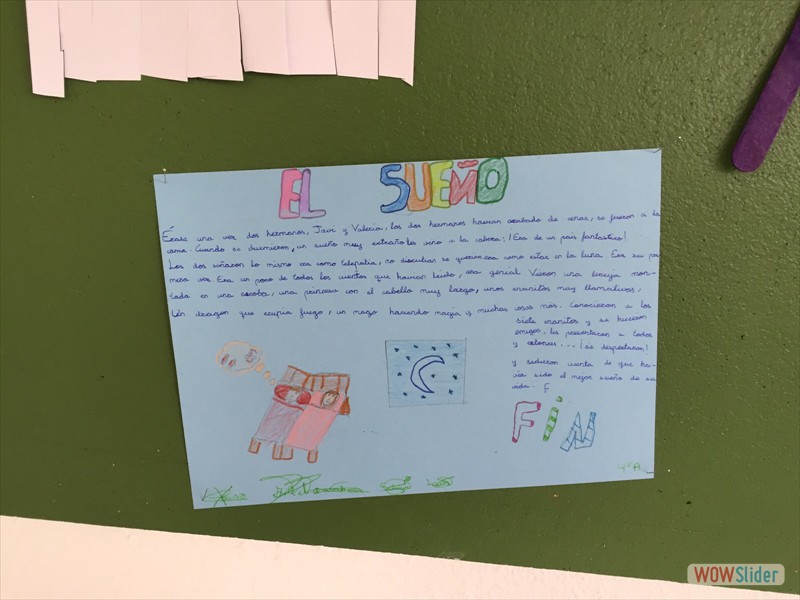 EL SUEÑO
Érase una vez dos hermanos, Javi y Valeria, los dos hermanos havian acabado de cenar, se fueron a la
cama. Cuando se durmieron, un sueño muy extraño les vino a la cabeza: ¡Era de un pais fantastico!
Los dos soñaron lo mismo era como telepatia, no discutian se querian era como estar en la luna. Era su pri
mera vez. Era un poco de todos los cuentos que havian leido, era genial. Vieron una bruja mon-
tada en una escoba, una princesa con el cabello muy largo, unos enanitos muy llamativos,
Un dragon que escupia fuego, un mago haciendo magia y muchas cosas más. Conocieron a los
siete enanitos y se hicieron
amigos. Les presentaron a todos
y entonces... ¡se despertaron!
y sedieron cuenta de que ha-
via sido el mejor sueño de su
vida.
FIN
4ºA
WOWSlider